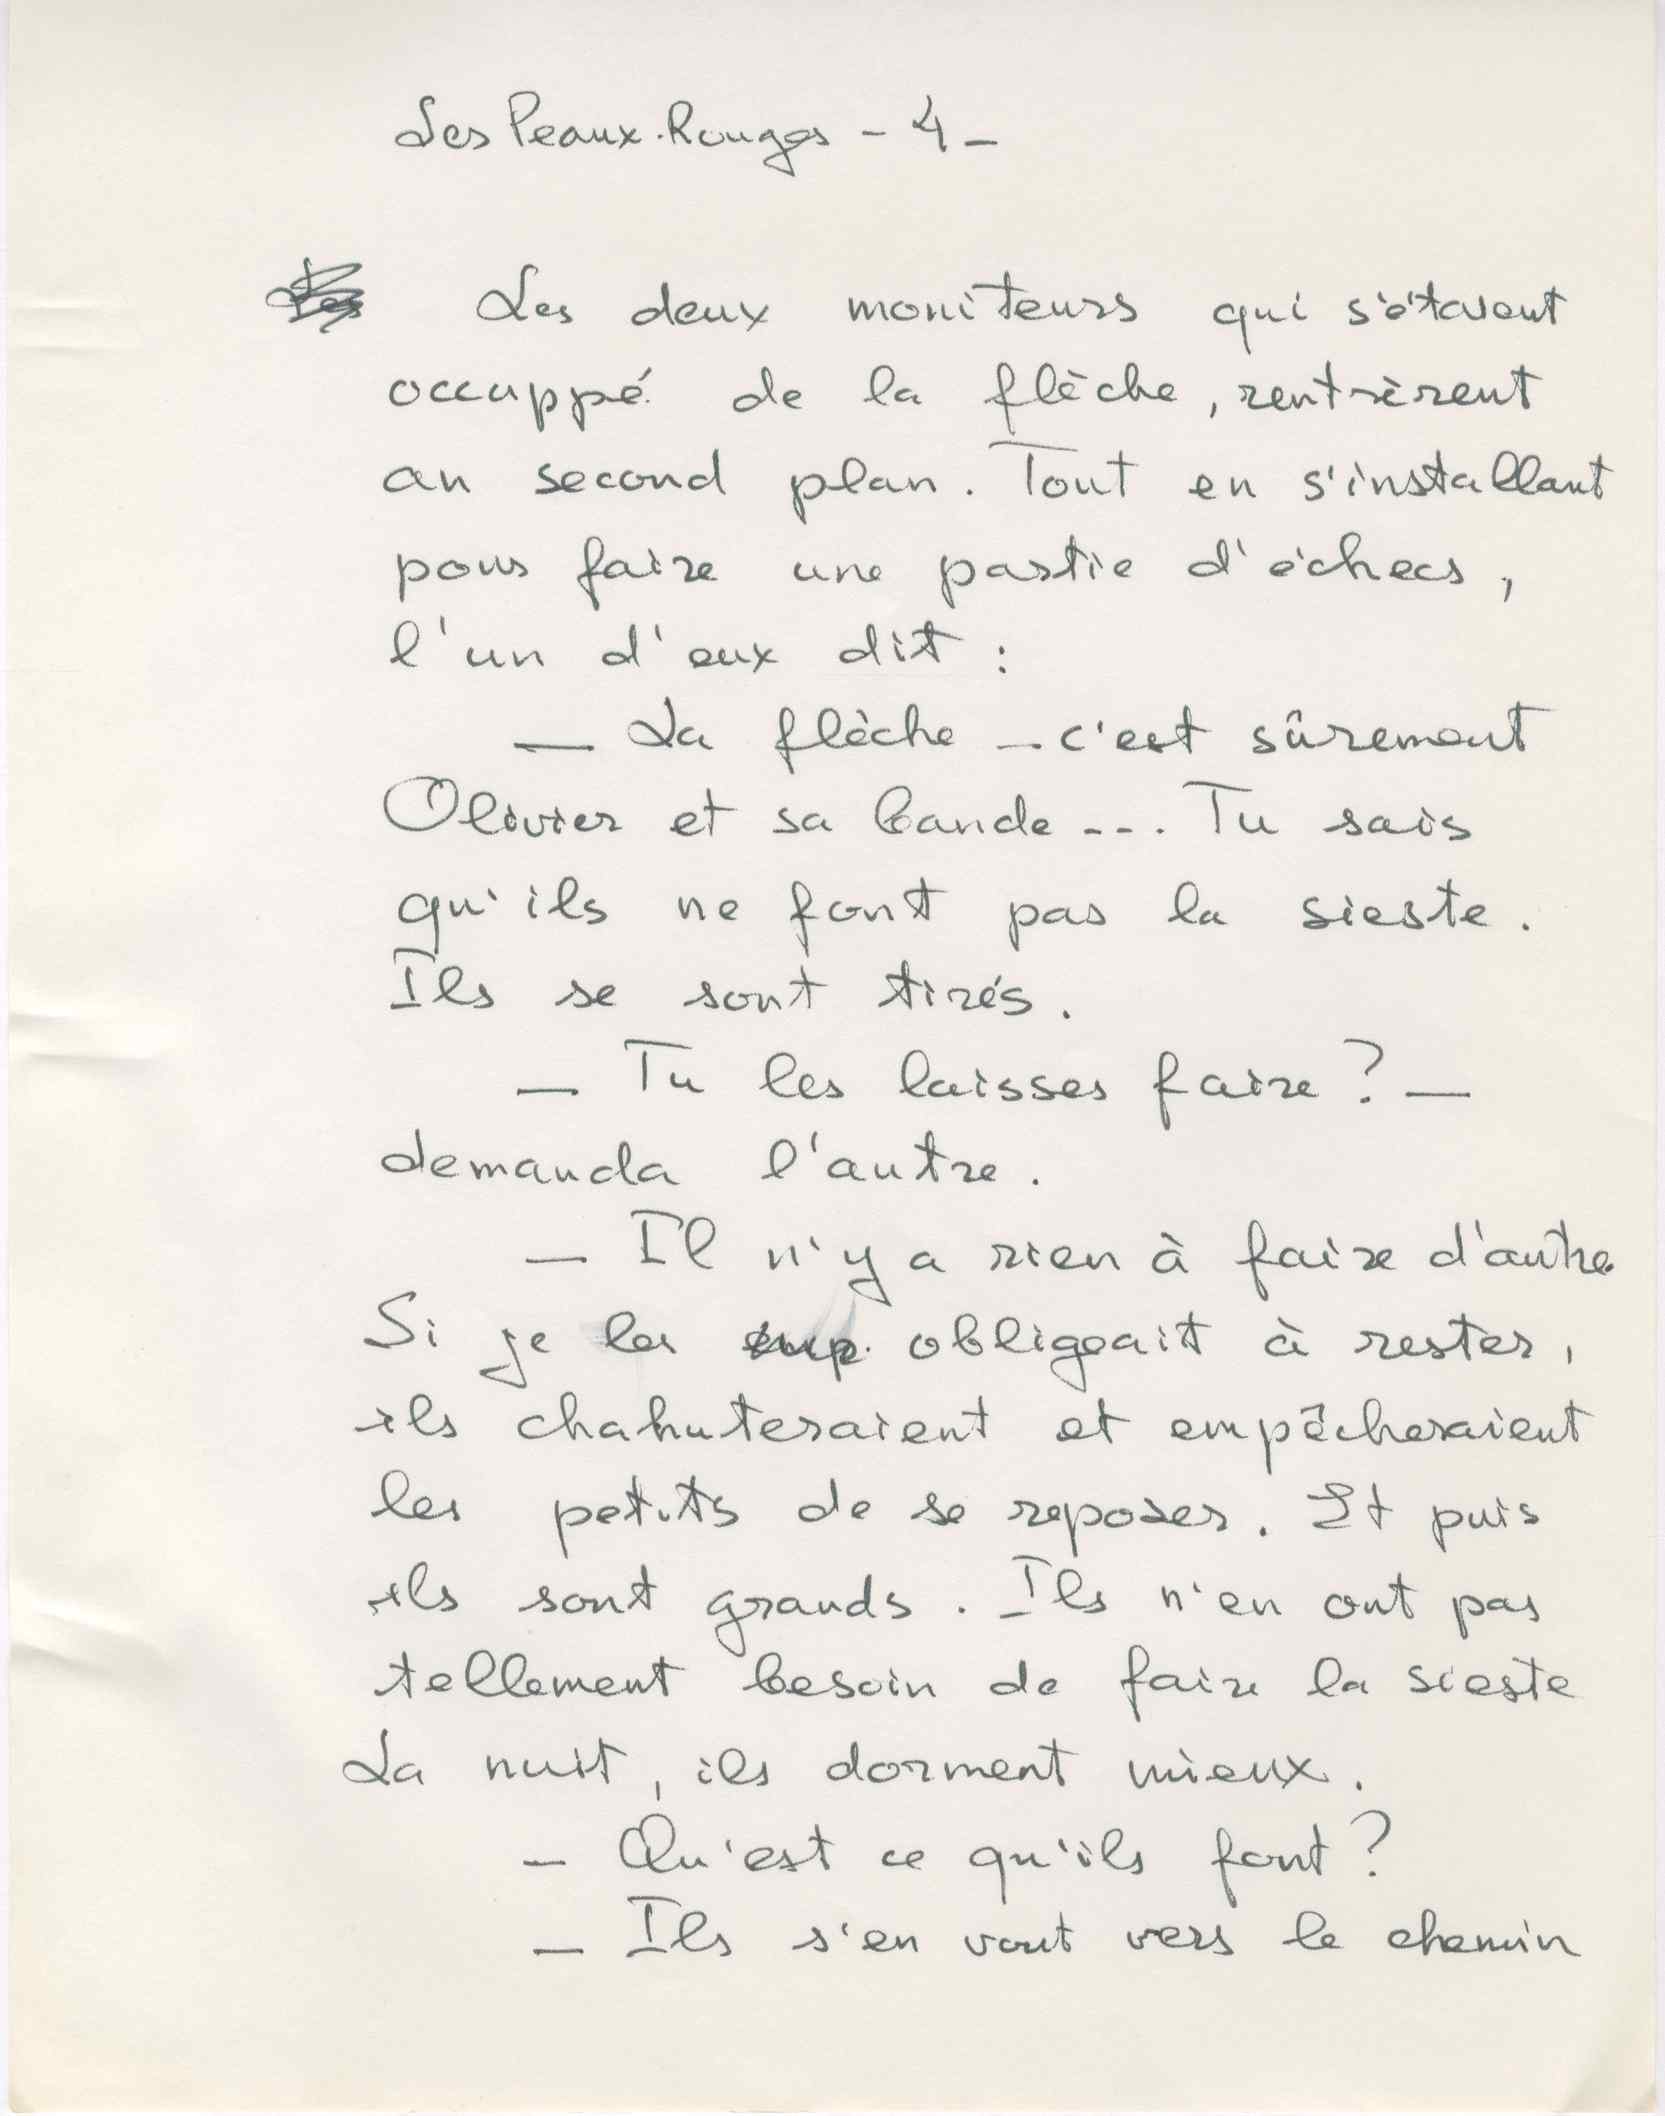 Les Peaux-Rouges - 4 -
Les deux moniteurs qui s'étaient
occuppé de la flèche, rentrèrent
au second plan. Tout en s'installant
pour faire une partie d'échecs,
l'un d'eux dit :
— La flèche - c'est sûrement
Olivier et sa bande --. Tu sais
qu'ils ne font pas la sieste.
Ils se sont tirés.
— Tu les laisses faire ? —
demanda l'autre.
— Il n'y a rien à faire d'autre.
Si je les obligeait à rester,
ils chahuteraient et empêcheraient
les petits de se reposer. Et puis
ils sont grands. Ils n'en ont pas
tellement besoin de faire la sieste
La nuit, ils dorment mieux.
— Qu'est ce qu'ils font ?
— Ils s'en vont vers le chemin